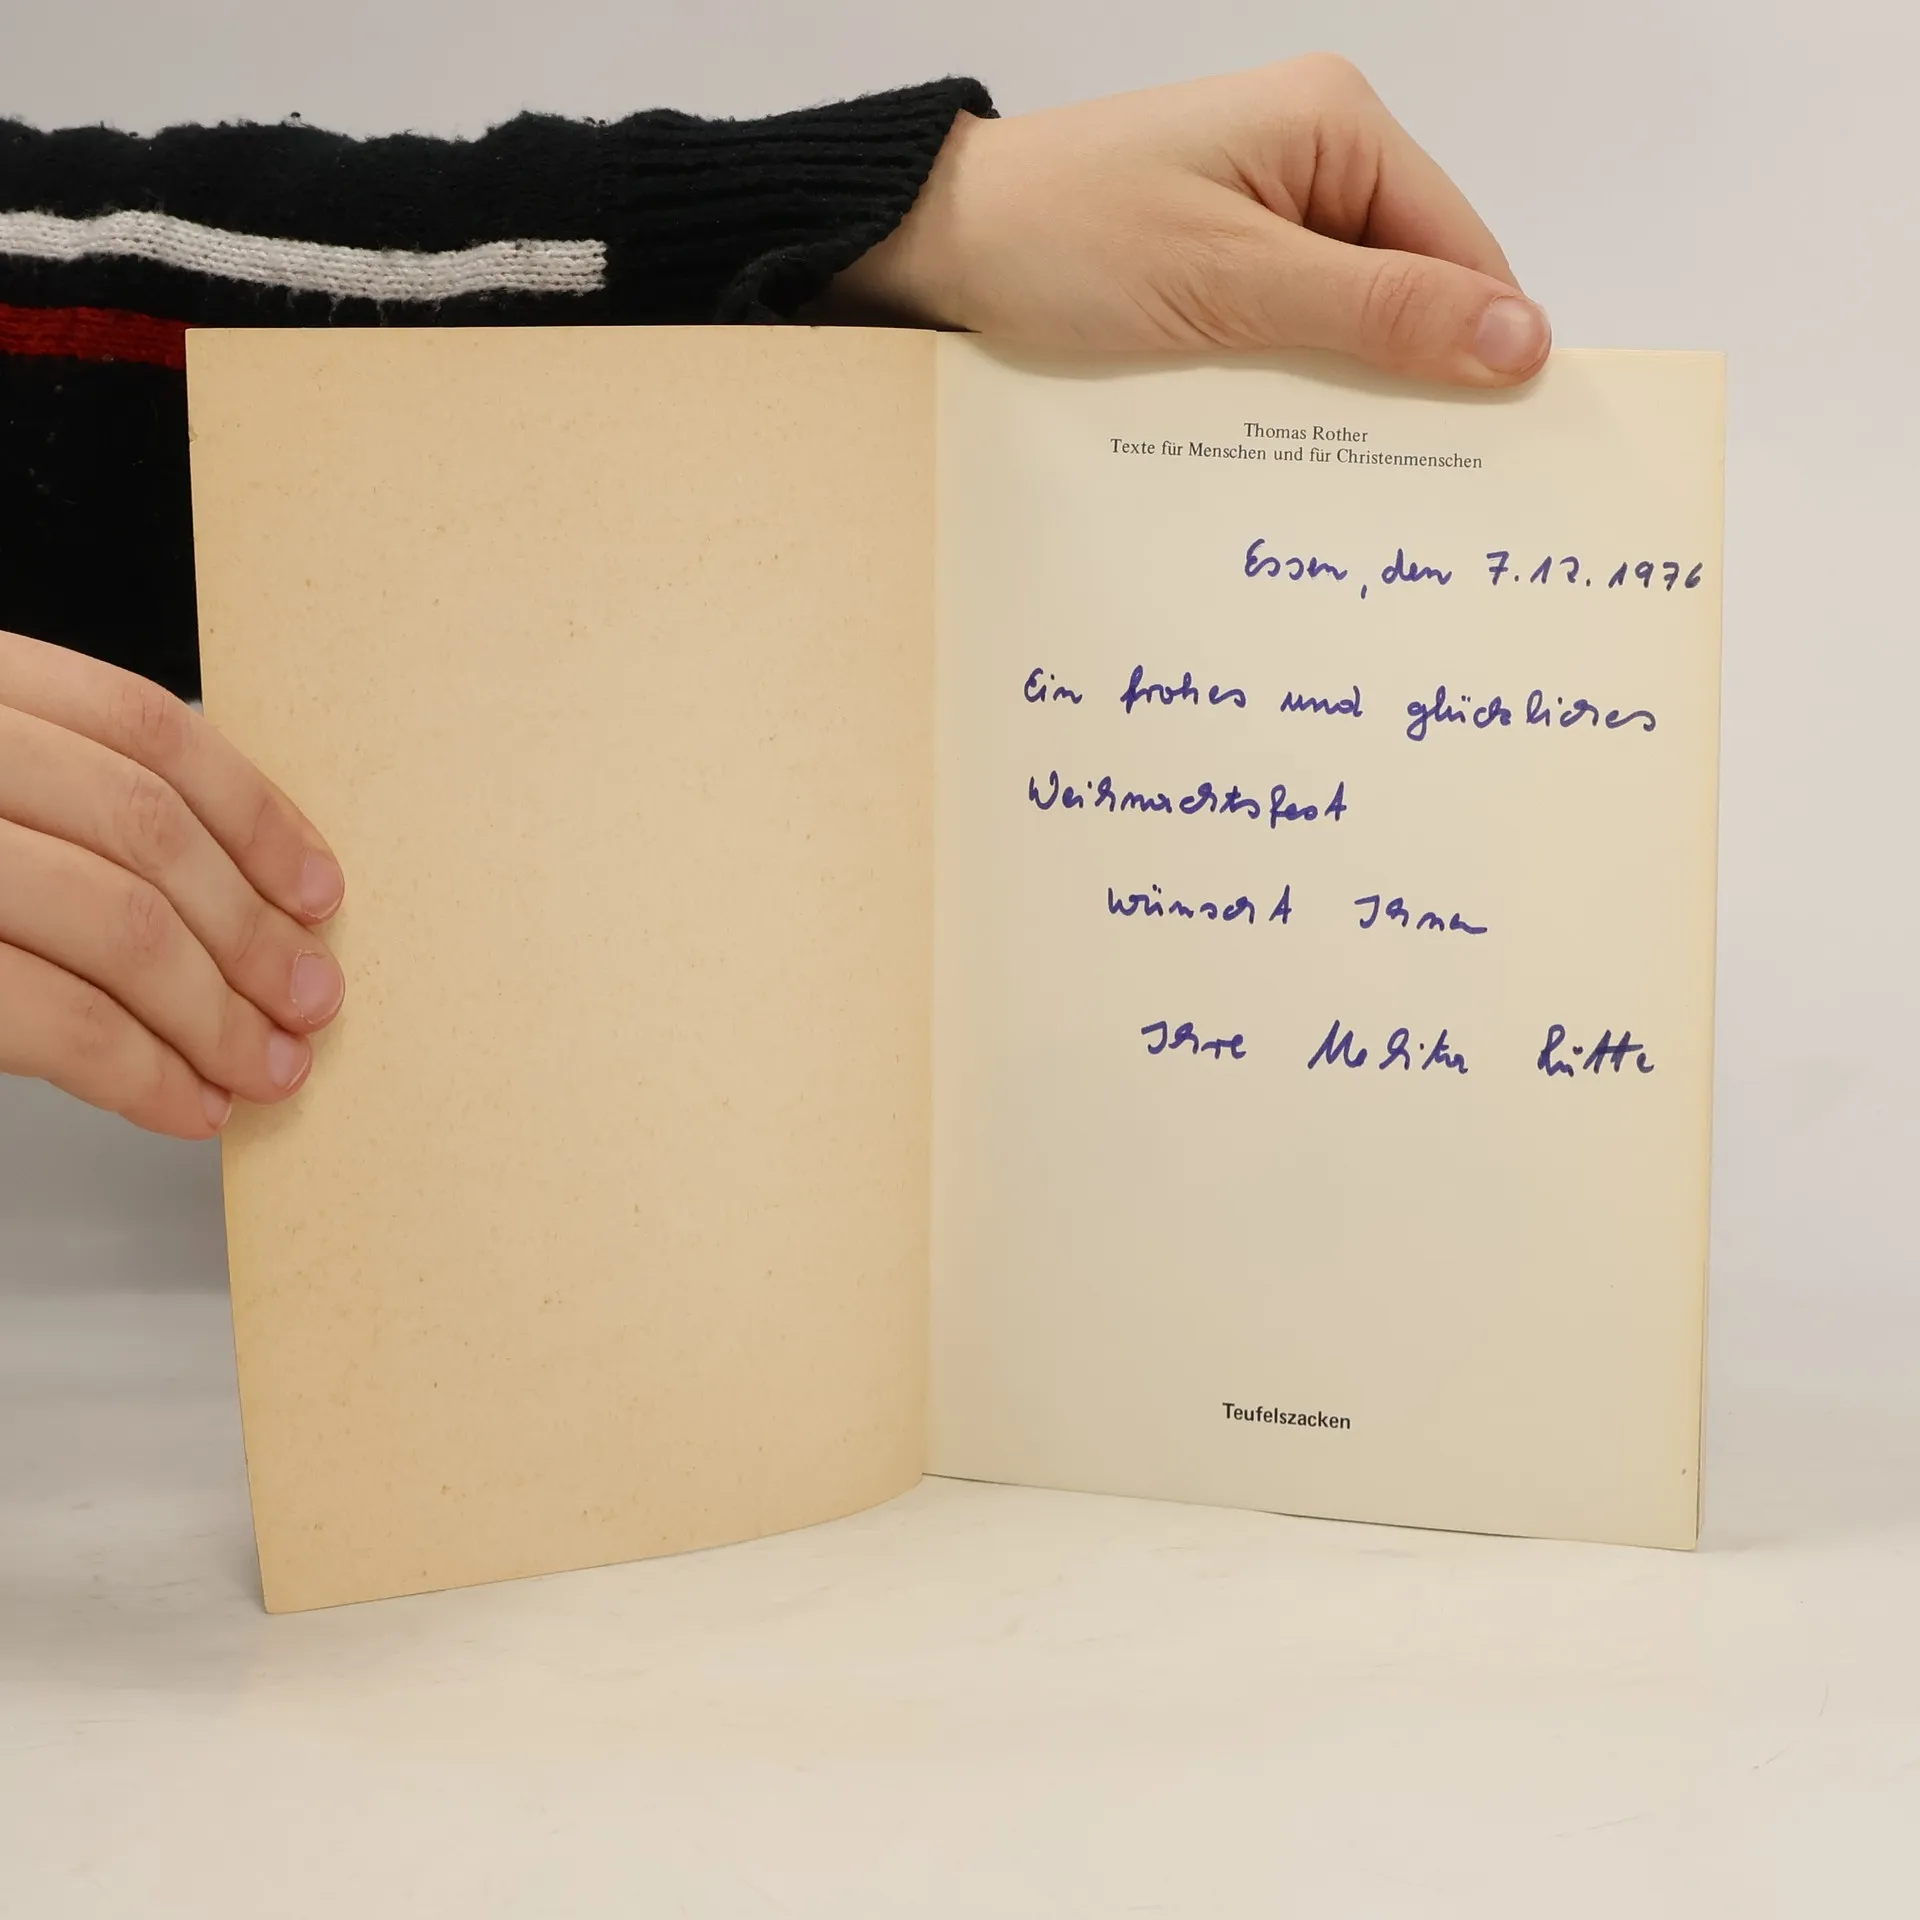 Thomas Rother
Texte für Menschen und für Christenmenschen
Essen, den 7.12.1976
Ein frohes und glückliches
Weihnachtsfest
wünscht Ihnen
Ihre
Teufelszacken